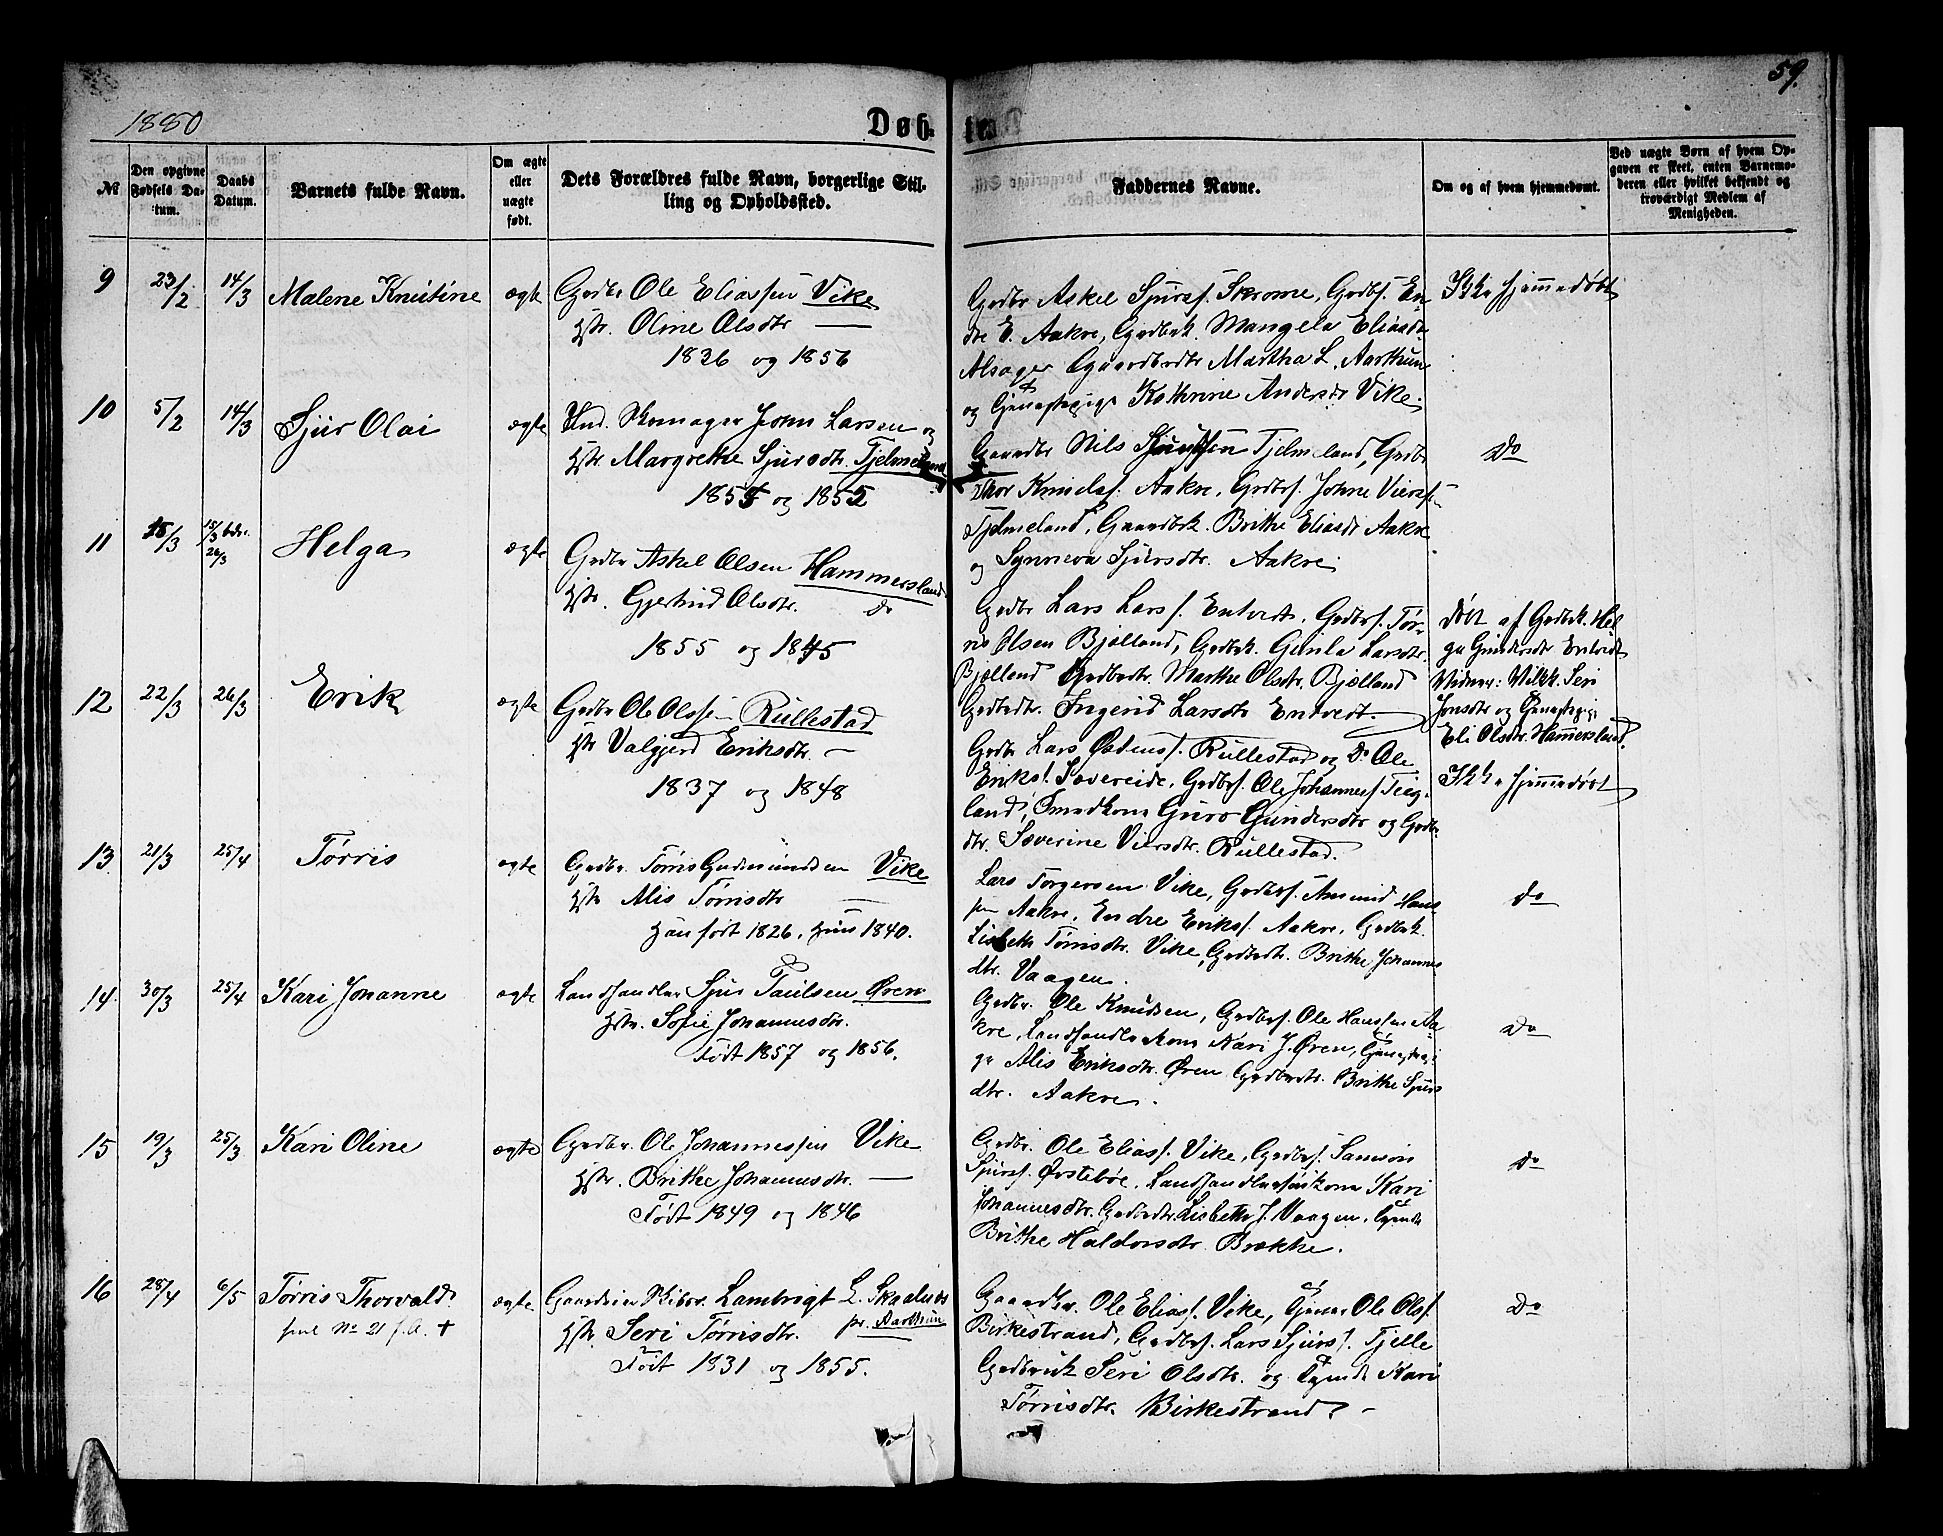 1880
Døb-
te.
59.
№
Den opgivne Fødsels Datum.
Daabs Datum.
Barnets fulde Navn.
Om ægte eller uægte født.
Dets Forældres fulde Navn, borgerlige Stilling og Opholdssted.
Faddernes Navne.
Om og af hvem hjemmedøbt.
Ved uægte Børn af hvem Opgaven er skeet, enten Barnemoderen eller hvilket bekjendt og troværdigt Medlem af Menigheden.
9 23/2 14/3 Malene Knutine ægte Grdbr Ole Eliassen Vike
Hstr. Oline Olsdtr —
1836 og 1856
Grdbr Askel Sjurss. Skromme, Grdbs. En-
dre E. Aakre, Grdbrk. Mangela Eliasdtr
Alsager Gaardbrdtr Martha L. Aarthun
og Katrine Andersdtr Vike.
Ikke hjemmedøbt
10 5/2 14/3 Sjur Olai ægte Ind. Skomager John Larsen og
Hstr. Margrethe Sjursdtr. Tjelmeland
og 1852
Gaardbr Nils Tjelmeland, Grdbr
Thor Knuds. Aakre, Grdbs. Johne Vierss.
Tjelmeland, Gaardbrk. Brithe Eliasdtr Aakre
og Synneva Sjursdtr. Aakre.
Do
11 18/3 26/3 Helga ægte Grdbr Askel Olsen Hammersland
Hstr. Gjertrud Olsdtr. do
1855 og 1845
Grdbr Lars Larss. Entvedt, Grdbrs. Tør-
ris Olsen Bjølland, Grdbrk. Gunla Larsdtr.
Bjølland Grdbrdtr. Marthe Olsdtr. Bjølland
Grdbrdtr. Ingerid Larsdtr Entvedt.
Døbt af Grdbrk. Hel-
ga Gundersdtr Entvedt
Vidner: Seri
Jonsdtr og
Eli Olsdtr. Hammersland.
12 22/3 26/3 Erik ægte Grdbr Ole Olssen Rullestad
Hstr Valgjerd Eriksdtr. —
1837 og 1848
Grdbr Lars Rullestad og Do Ole
Eriks. Sævereide, Grdbrs. Ole Johanness. Teig-
land, Guro Gundersdtr og Grdbr-
dtr. Severine Viersdtr. Rullestad.
Ikke hjemmedøbt
13. 21/3 25/4 Tørris ægte Grdbr. Tørris Gudmundsen Vike
Hstr Alis Tørrisdtr —
Han født 1826, Hun 1840.
Lars Torgersen Vike, Grdbrs. Amund Hans-
sen Aakre, Endre Erikss. Aakre, Grdbrk.
Lisbeth Tørrisdtr. Vike, Grdbrdtr. Brithe Johannes
dtr. Vaagen.
do
14. 30/3 25/4 Kari Johanne ægte Landhandler Sjur Paulsen Øren
Hstr. Sofie Johannesdtr.
Født 1857 og 1856.
Grdbr. Ole Knudsen, Grdbrs. Ole Hanssen Aa-
kre, Landhandlerkone Kari J. Øren,
Alis Eriksdtr. Øren Grdbrdtr. Brithe Sjurs
dtr. Aakre.
Do
15 19/3 25/3 Kari Oline ægte Grdbr. Ole Johannessen Vike
Hstr. Brithe Johannesdtr. —
Født 1849 og 1846
Grdbr. Ole Eliass. Vike, Grdbrs. Samson
Sjurss. Ørstebøe, Kari
Johannesdtr. Grdbrdtr. Lisbeth J. Vaagen,
Brithe Haldorsdtr. Brekke.
Do
16 28/4 6/5 Tørris Thorvald. ægte Lambrigt L. Skaalnes
No 21 f. A. +
Hstr. Seri Tørrisdtr. pr. Aarthun
Født 1831 og 1855.
Gaardbr. Ole Eliass. Vike, Ole Olss.
Birkestrand, Grdbrs. Lars Sjurss. Tjelle
Seri Olsdtr. og Kari
Tørrisdtr. Birkestrand. —
Do